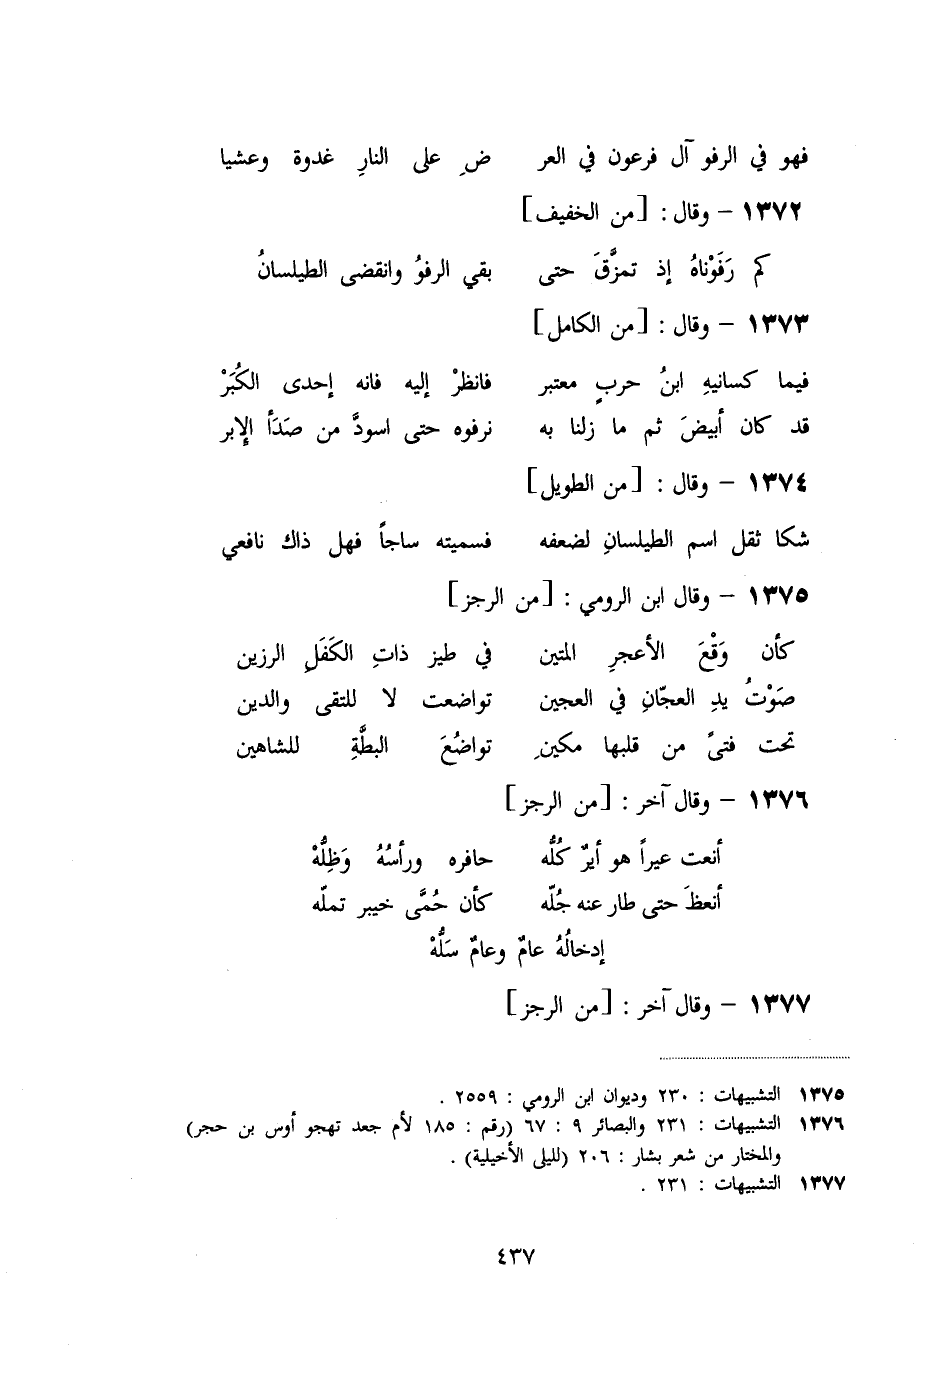 فهو في الرفو آل فرعون في العر ضِ على النارِ غدوة وعشيا
١٣٧٢ – وقال : [من الخفيف]
كم رَفَوْناهُ إذ تمزَّقَ حتى بقي الرفوُ وانقضى الطيلسانُ
١٣٧٣ – وقال : [من الكامل]
فيما كسانيهِ ابنُ حربٍ معتبر فانظرْ إليه فانه إحدى الكُبَرْ
قد كان أبيضَ ثم ما زلنا به نرفوه حتى اسودَّ من صَدَأ الإبر
١٣٧٤ – وقال : [من الطويل]
شكا ثقل اسم الطيلسانِ لضعفه فسميته ساجاً فهل ذاك نافعي
١٣٧٥ – وقال ابن الرومي : [من الرجز]
كأن وَقْعَ الأعجرِ المتين في طيز ذاتِ الكَفَلِ الرزين
صَوْتُ يدِ العجّانِ في العجين تواضعت لا للتقى والدين
تحت فتىً من قلبها مكينِ تواضُعَ البطَّةِ للشاهين
١٣٧٦ – وقال آخر : [من الرجز]
أنعت عيراً هو أيرٌ كُلُّه حافره ورأسُهُ وَظِلُّهْ
أنعظَ حتى طار عنه جُلّه كأن حُمَّى خيبر تملّه
إدخالُهُ عامٌ وعامٌ سَلُّهْ
١٣٧٧ – وقال آخر : [من الرجز]
١٣٧٥ التشبيهات : ٢٣٠ وديوان ابن الرومي : ٢٥٥٩ .
١٣٧٦ التشبيهات : ٢٣١ والبصائر ٩ : ٦٧ (رقم : ١٨٥ لأم جعد تهجو أوس بن حجر)
والمختار من شعر بشار : ٢٠٦ (لليلى الأخيلية) .
١٣٧٧ التشبيهات : ٢٣١ .
٤٣٧